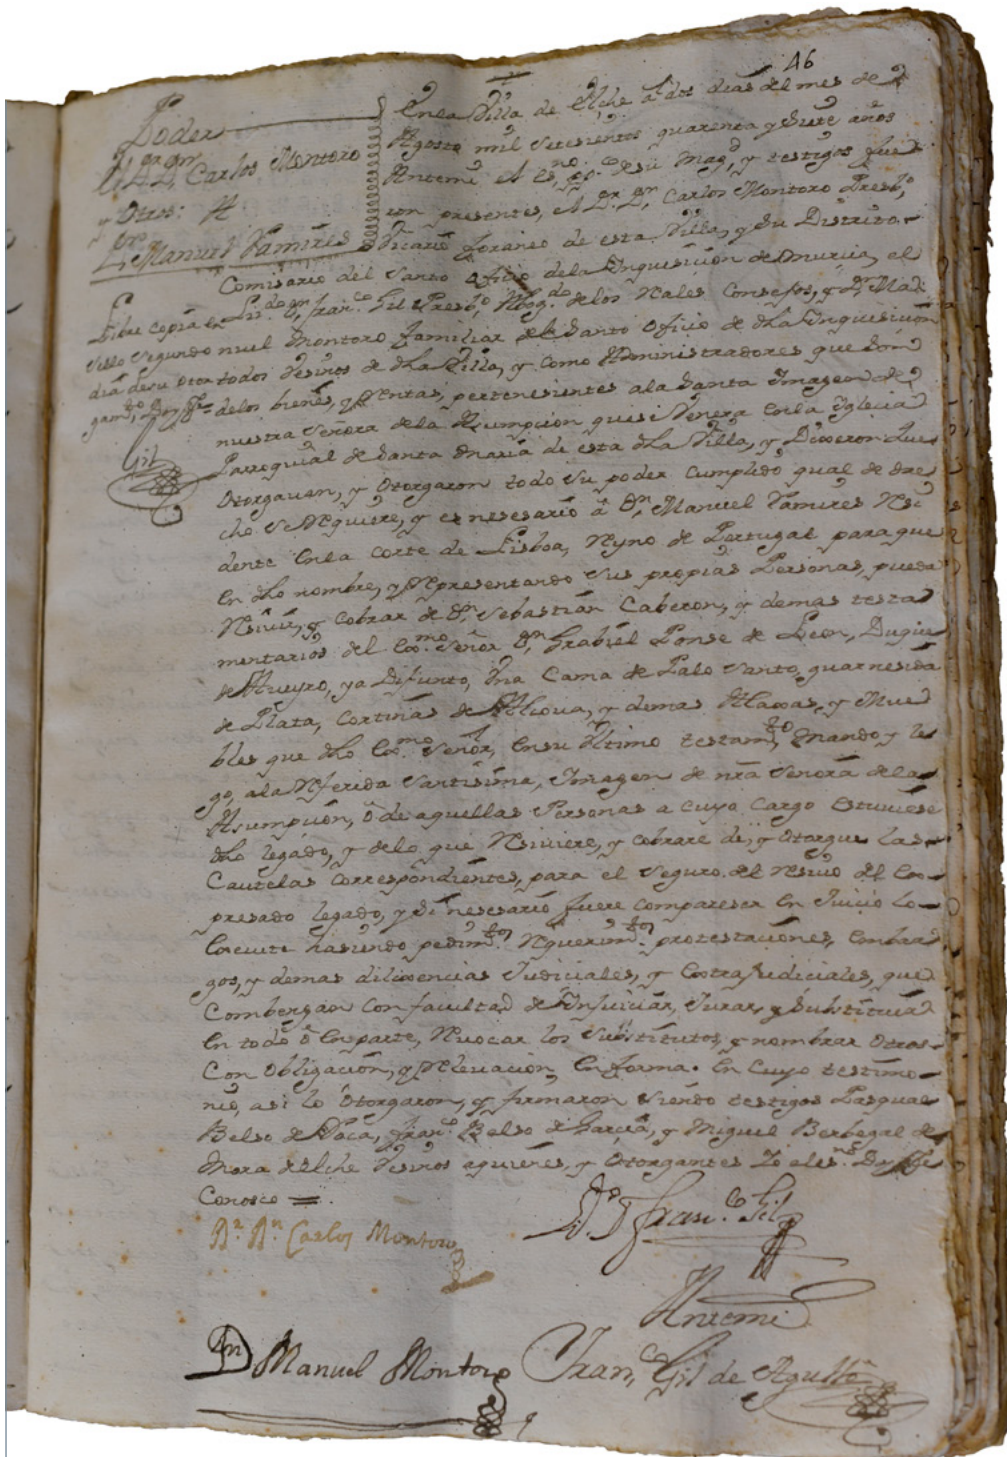 46
Poder
Dr Dn Carlos Montoro
y otros: A
Dn Manuel Ramires
Libre copia en
sello segundo
dia de su otor
gamto, Doy fe
Gil
Enla Villa de Elche a dos dias del mes de
Agosto mil setesientos quarenta y siete años
Antemi el esno ppco desu Magd, y testigos fue
ron presentes, el Dr Dn Carlos Montoro Presbo,
Vicario foraneo de esta Villa, y su Distrito.
Comisario del Santo ofisio dela Inquisision de Murcia, el
Lisdo Dn franco Gil Presbo, Abogdo delos Rales Consejos, y Dn Ma
nuel Montoro familiar del Santo Ofisio de dha Inquisision
todos Vesinos de dha Villa, y como Administradores que son
delos bienes, y Rentas, pertenesientes ala Santa Imagen de
nuestra Señora dela Asumpcion que se Venera enla Iglecia
Parroquial de Santa Maria de esta dha Villa, y Dixeron Que
Otorgavan, y Otorgaron todo su poder cumplido qual de dre
cho se Requiere, y es nesesario â Dn Manuel Ramires Resi
dente enla corte de Lisboa, Reyno de Portugal para que
en dho nombre, y Representando sus propias Personas, pueda
Resivir, y cobrar de Dn Sebastian Caberon, y demas testa
mentarios del Exmo Señor Dn Grabiel Ponse de Leon, Duque
de Aveyro, ya Difunto, Vna Cama de Palo Santo, guarnesida
de Plata, Cortinas de Alcova, y demas Alaxas, y Mue
bles que dho Exmo Señor, en su Vltimo testamto, mando y le
go, ala Referida Santisima, Imagen de nra Señora dela
Asumpsion, ô de aquellas Personas a cuyo cargo estuviese
dho legado, y delo que Resiviere, y cobrare de, y otorgue las
Cautelas correspondientes, para el seguro del resivo del ex
presado legado, y si nesesario fuere compareser en Juicio lo
execute hasiendo pedimtos Requerimtos protestasiones, embar
gos, y demas dilixencias Judiciales, y extrajudiciales, que
Combengan con facultad de Enjuiciar, Jurar, y Substituir
en todo ô en parte, Revocar los Substitutos, y nombrar otros
Con Obligacion, y Relevacion en forma. En cuyo testimo
nio, asi lo Otorgaron, y firmaron siendo testigos Pasqual
Belso de Vaca, franco Belso de Garcia, y Miguel Berbegal de
Mora de Elche Vesinos aquienes, y Otorgantes Yo el esno Doy fe
Conosco =
Dr. Dn. Carlos Montoro
Ldo Dn Franco Gil
Antemi
Dn Manuel Montoro
Franco Gil de Agullô